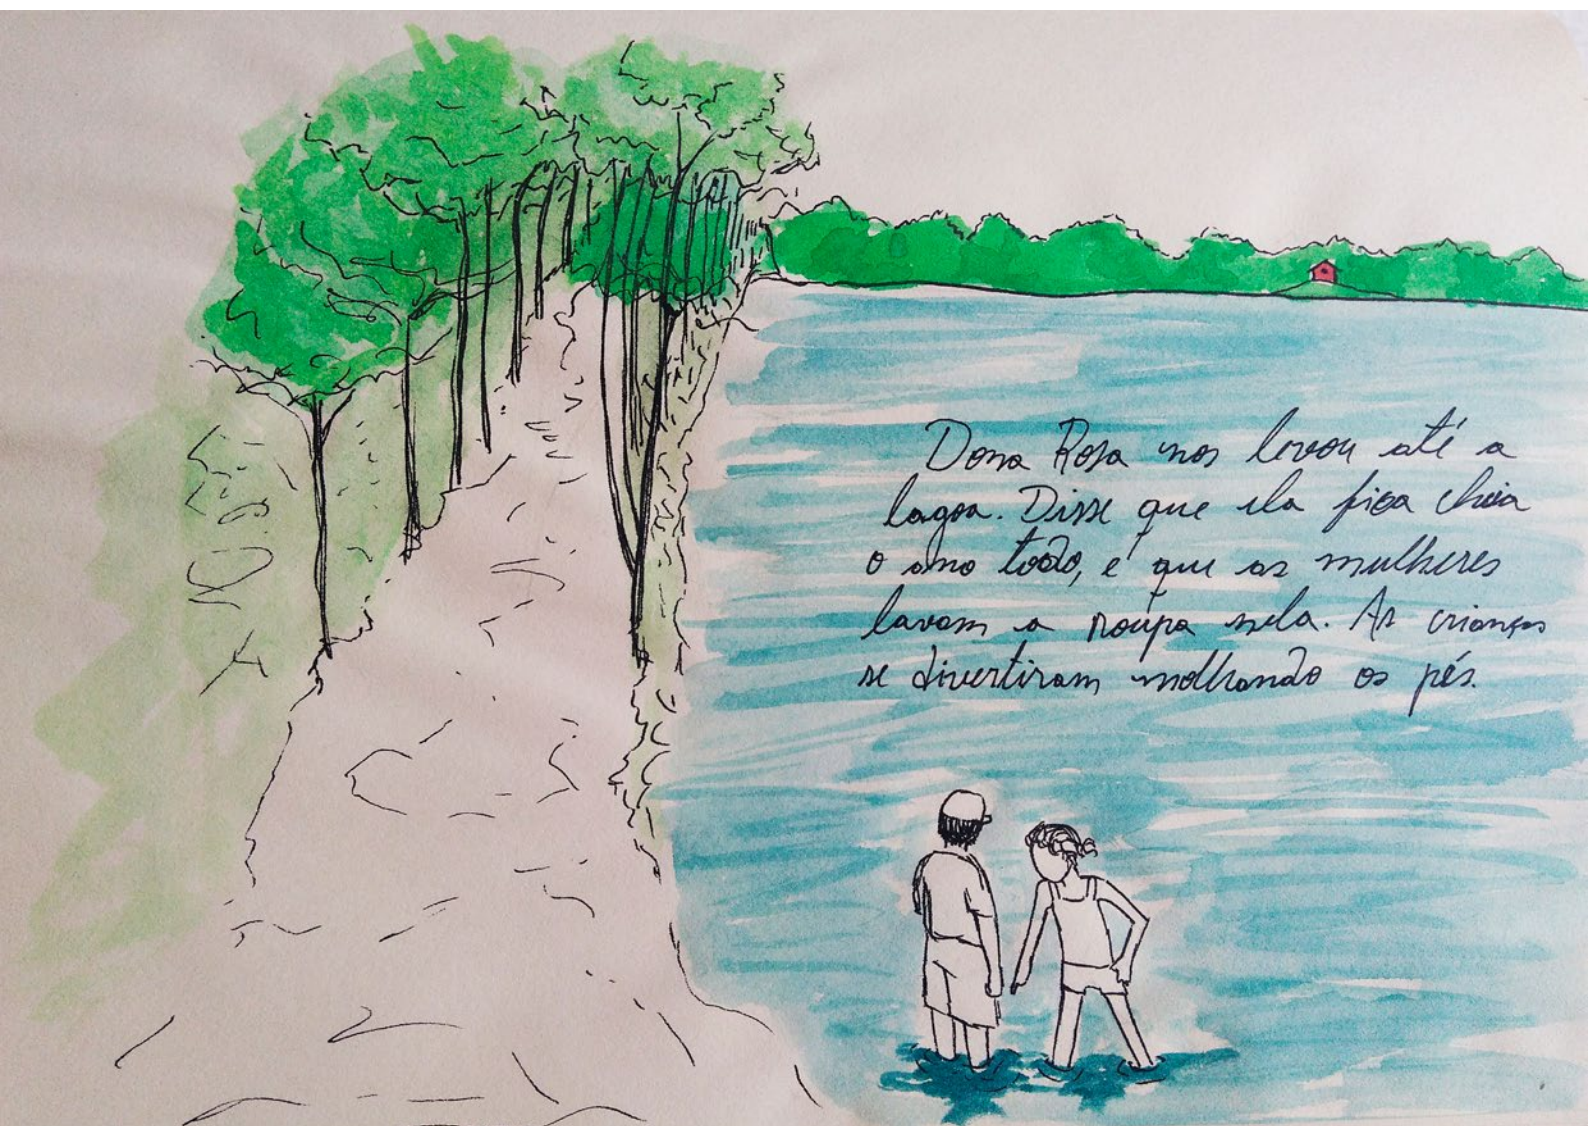 Dona Rosa nos levou até a
lagoa. Disse que ela fica cheia
o ano todo, e que as mulheres
lavam a roupa nela. As crianças
se divertiram molhando os pés.